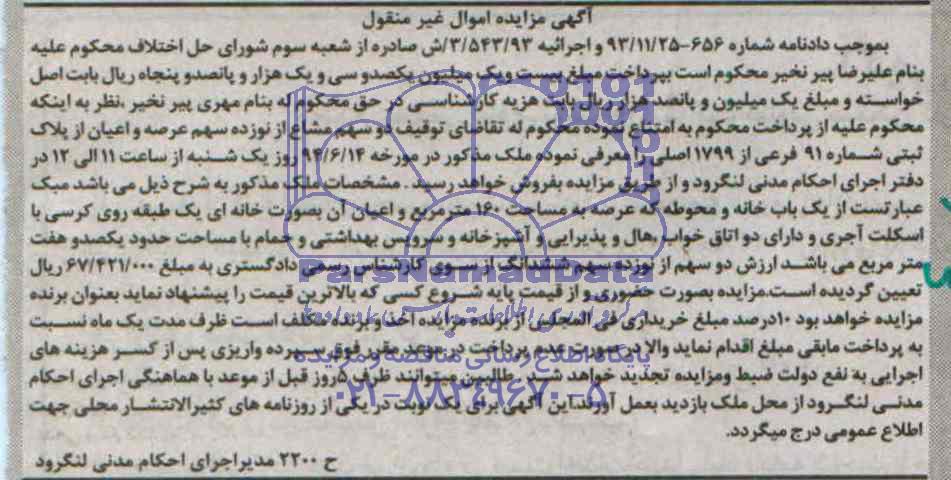 آگهی مزایده اموال غیر منقول
بموجب دادنامه شماره ۶۵۶-۹۳/۱۱/۲۵ و اجرائیه ۳/۵۴۳/۹۳/ش صادره از شعبه سوم شورای حل اختلاف محکوم علیه
بنام علیرضا پیر نخیر محکوم است بپرداخت مبلغ بیست ویک میلیون یکصدو سی و یک هزار و پانصدو پنجاه ریال بابت اصل
خواسته و مبلغ یک میلیون و پانصد هزار ریال بابت هزیه کارشناسی در حق محکوم له بنام مهری پیر نخیر ،نظر به اینکه
محکوم علیه از پرداخت محکوم به امتناع نموده محکوم له تقاضای توقیف دو سهم مشاع از نوزده سهم عرصه و اعیان از پلاک
ثبتی شماره ۹۱ فرعی از ۱۷۹۹ اصلی را معرفی نموده ملک مذکور در مورخه ۹۴/۶/۱۴ روز یک شنبه از ساعت ۱۱ الی ۱۲ در
دفتر اجرای احکام مدنی لنگرود و از طریق مزایده بفروش خواهد رسید . مشخصات ملک مذکور به شرح ذیل می باشد مبک
عبارتست از یک باب خانه و محوطه که عرصه به مساحت ۱۶۰ مترمربع و اعیان آن بصورت خانه ای یک طبقه روی کرسی با
اسکلت آجری و دارای دو اتاق خواب ،هال و پذیرایی و آشپزخانه و سرویس بهداشتی و حمام با مساحت حدود یکصدو هفت
متر مربع می باشد ارزش دو سهم از نوزده سهم ششدانگ از سوی کارشناس رسمی دادگستری به مبلغ ۶۷/۴۲۱/۰۰۰ ریال
تعیین گردیده است.مزایده بصورت حضوری و از قیمت پایه شروع کسی که بالاترین قیمت را پیشنهاد نماید بعنوان برنده
مزایده خواهد بود ۱۰درصد مبلغ خریداری فی المجلس از برنده مزایده اخذ و برنده مکلف است ظرف مدت یک ماه نسبت
به پرداخت مابقی مبلغ اقدام نماید والا در صورت عدم پرداخت در موعد مقرر فوق سپرده واریزی پس از کسر هزینه های
اجرایی به نفع دولت ضبط ومزایده تجدید خواهد شد . طالبین میتوانند ظرف ۵روز قبل از موعد با هماهنگی اجرای احکام
مدنی لنگرود از محل ملک بازدید بعمل آورند.این آگهی برای یک نوبت در یکی از روزنامه های کثیرالانتشار محلی جهت
اطلاع عمومی درج میگردد.
ح ۲۲۰۰ مدیراجرای احکام مدنی لنگرود
ParsNamadData
پایگاه اطلاع رسانی مناقصه و مزایده
۰۲۱-۸۸۳۴۹۶۷۰-۵